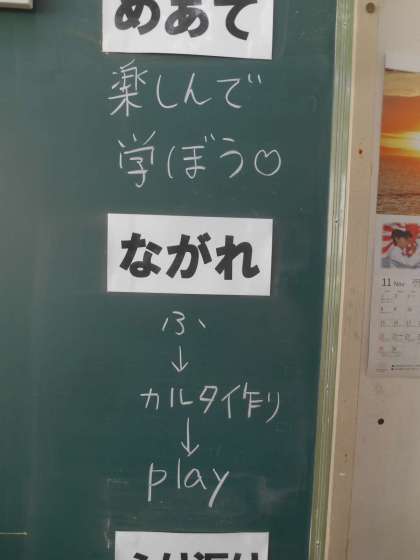 めあて
楽しんで
学ぼう♡
ながれ
ふ
↓
カルタ作り
↓
play
11 Nov